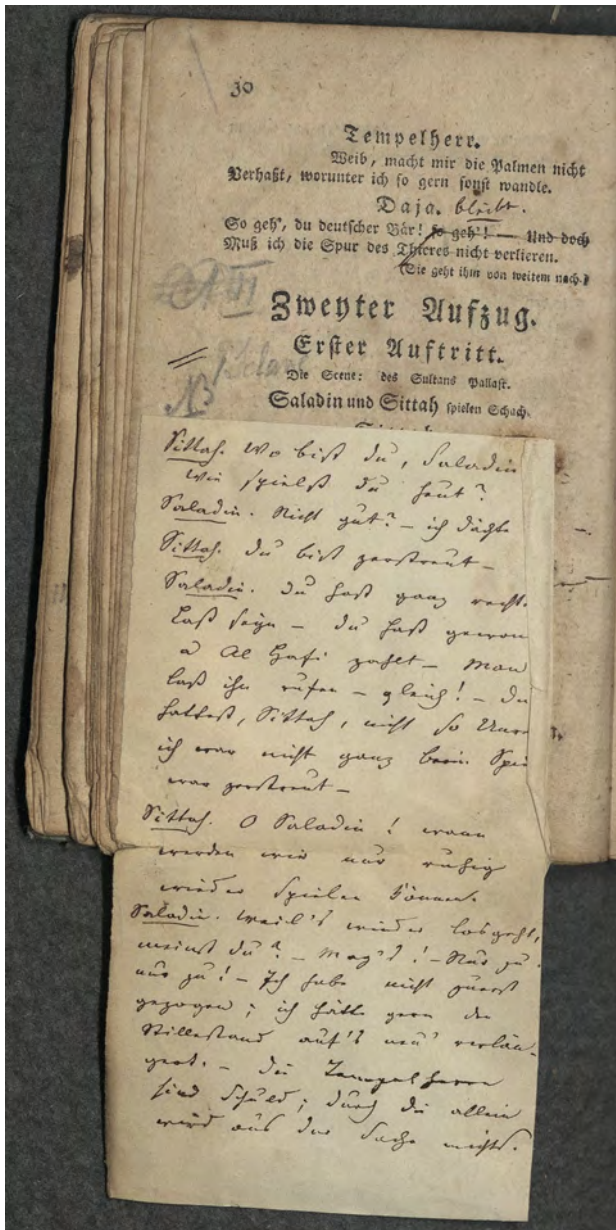 30
Tempelherr.
Weib, macht mir die Palmen nicht
Verhaßt, worunter ich so gern sonst wandle.
Daja. bleibt.
So geh', du deutscher Bär! so geh'! — Und doch
Muß ich die Spur des Thieres nicht verlieren.
(Sie geht ihm von weitem nach.)
Zweyter Aufzug.
Erster Auftritt.
Die Scene: des Sultans Pallast.
Saladin und Sittah spielen Schach.
Sittah. Wo bist du, Saladin
wie spielst du heut?
Saladin. Nicht gut? – ich dächte
Sittah. du bist zerstreut –
Saladin. du hast ganz recht.
Laß seyn – du hast gewon
Al Hafi zahlt – Man
laß ihn rufen – gleich! – du
hattest, Sittah, nicht so Unre
ich war nicht ganz beim Spie
war zerstreut –
Sittah. O Saladin! wann
werden wir nur ruhig
wieder spielen können.
Saladin. weil's wieder losgeht,
meinst du? – Mag's! – Nur zu
nur zu! – Ich habe nicht zuerst
gezogen; ich hätte gern den
Stillestand auf's neu' verlän-
gert. – die Tempelherrn
sind Schuld; durch die allein
wird aus der Sache nichts.